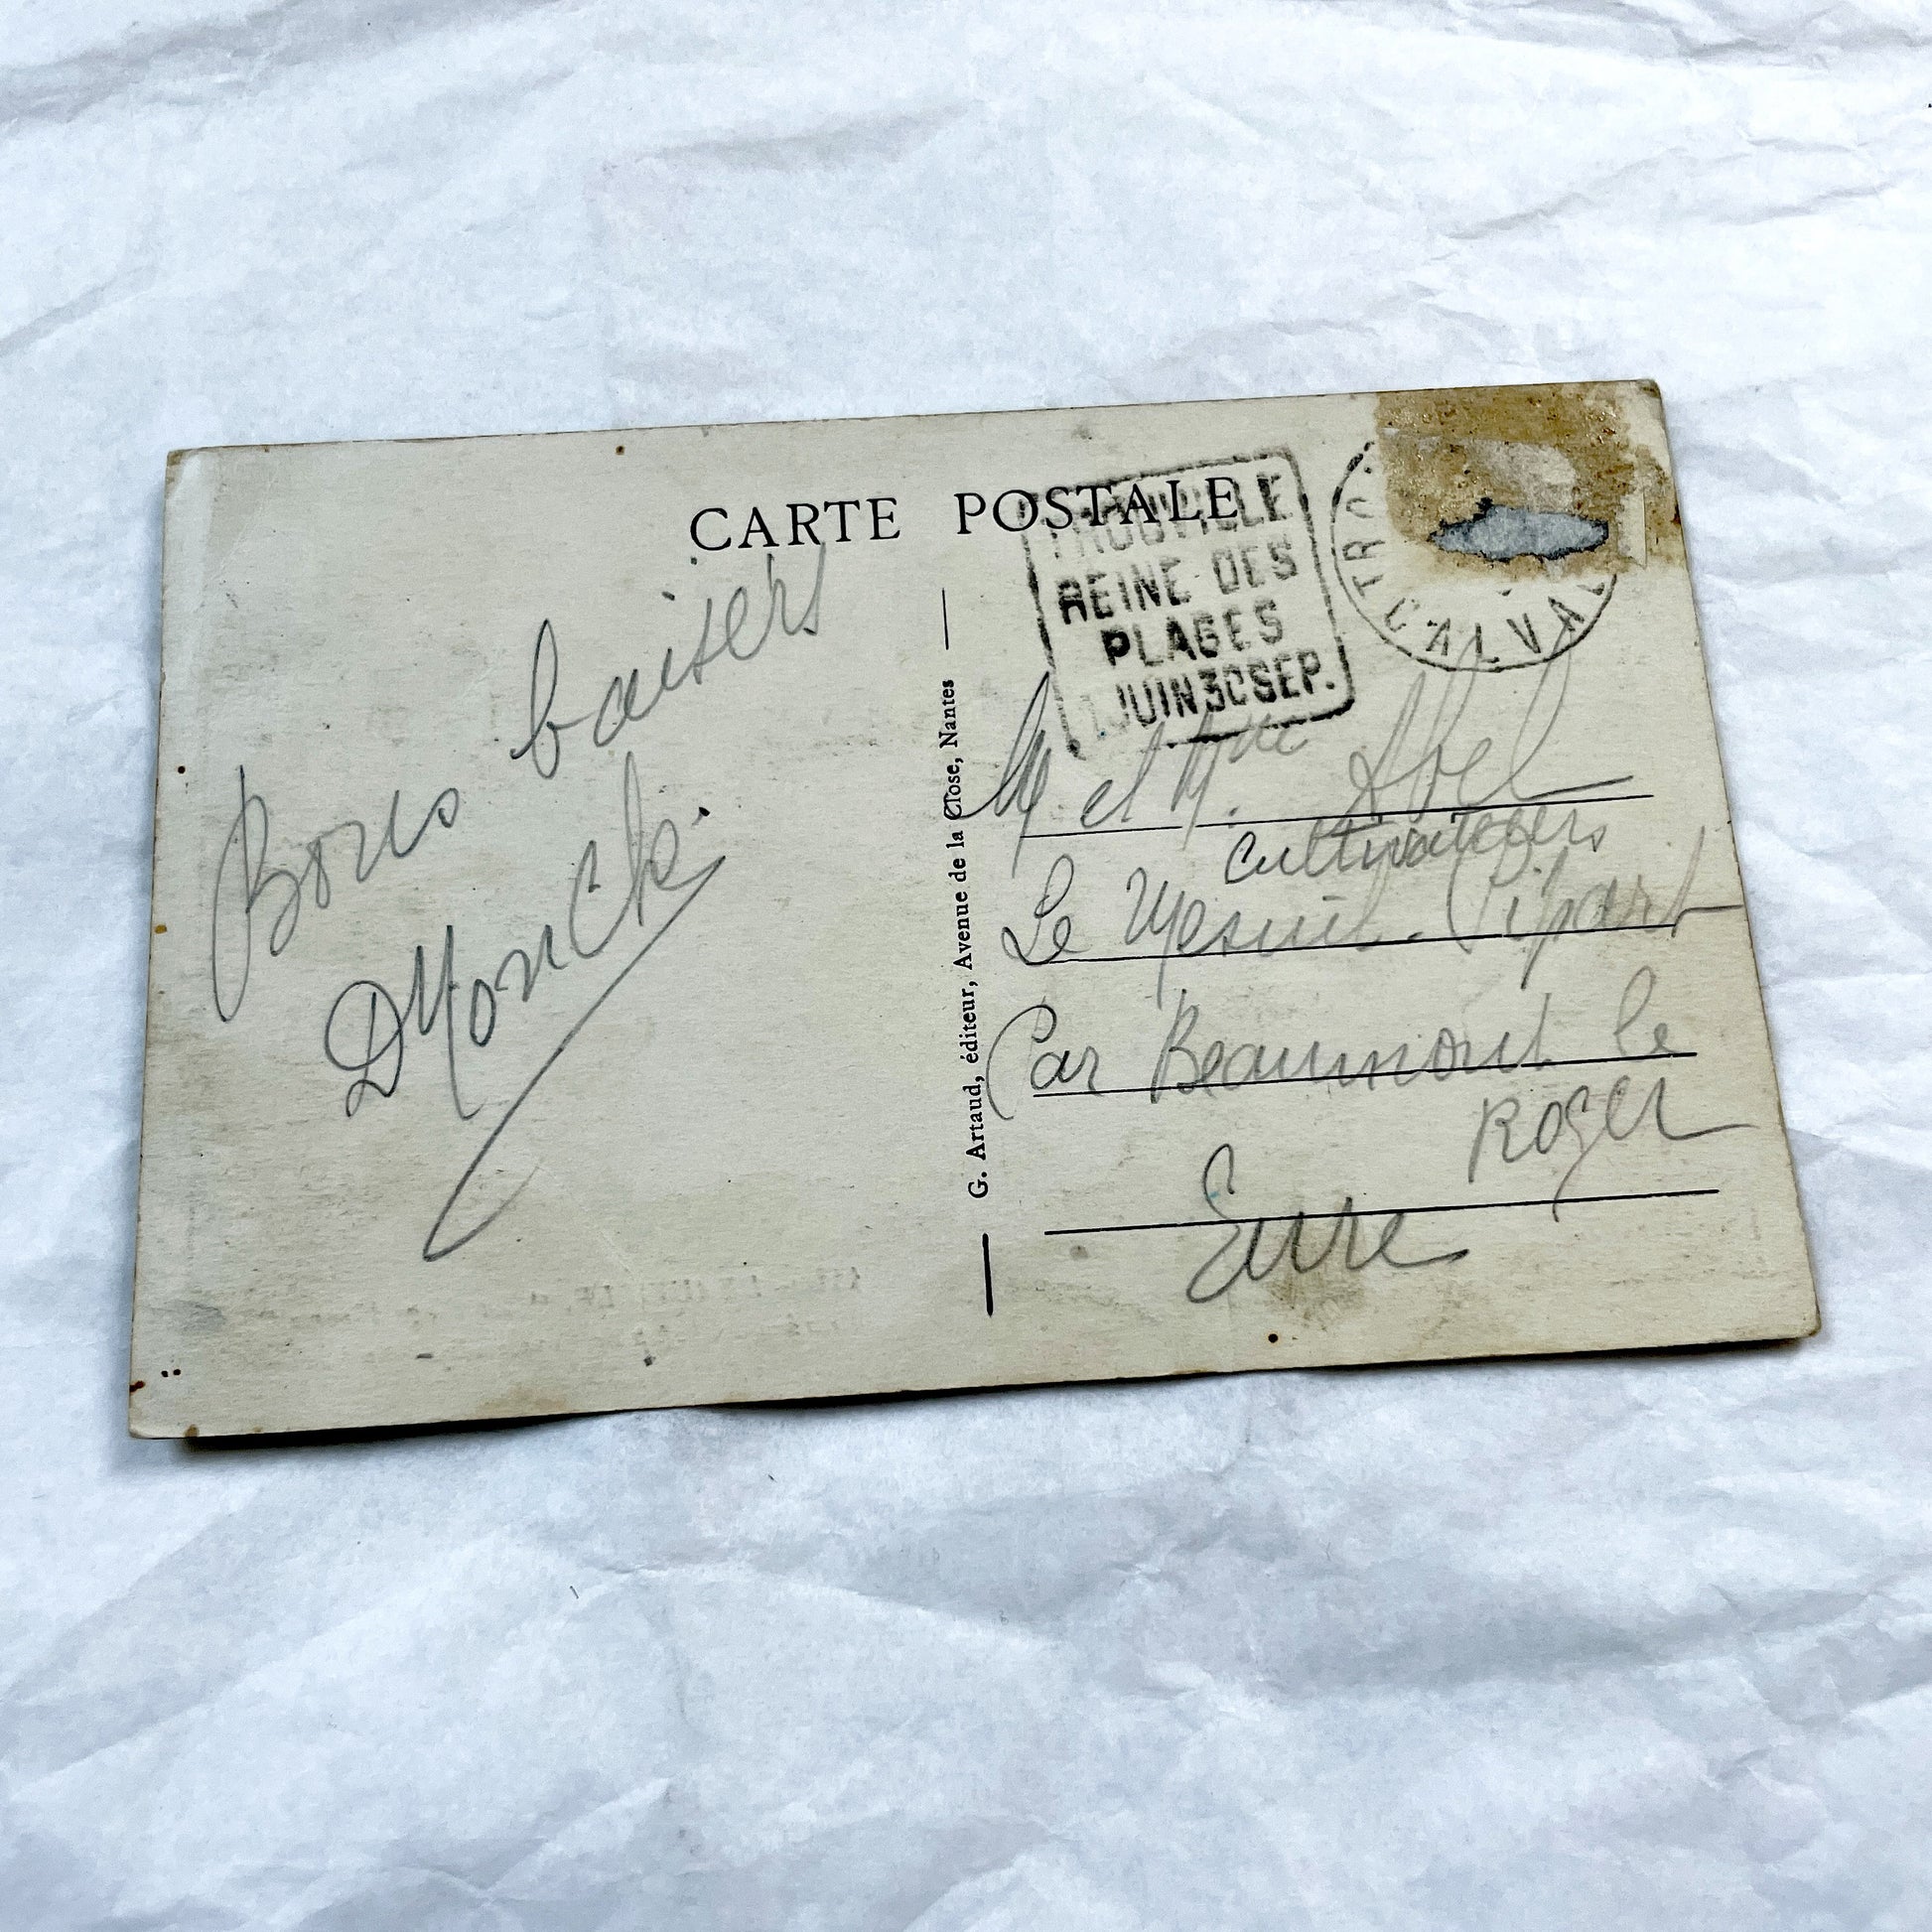 CARTE POSTALE
TROUVILLE
REINE DES
PLAGES
1 JUIN 30 SEP.
CALVA
Bons baisers
G. Artaud, éditeur, Avenue de la Close, Nantes
M et Mme Abel
Cultivateurs
Le Mesnil-Pipart
Par Beaumont le
Roger
Eure